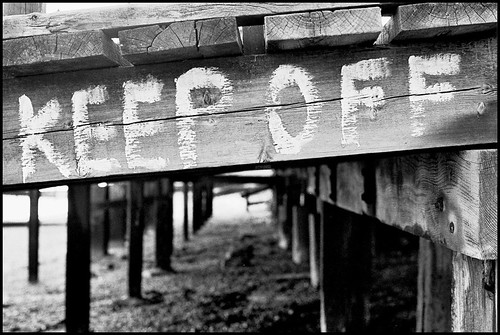 KEEP OFF